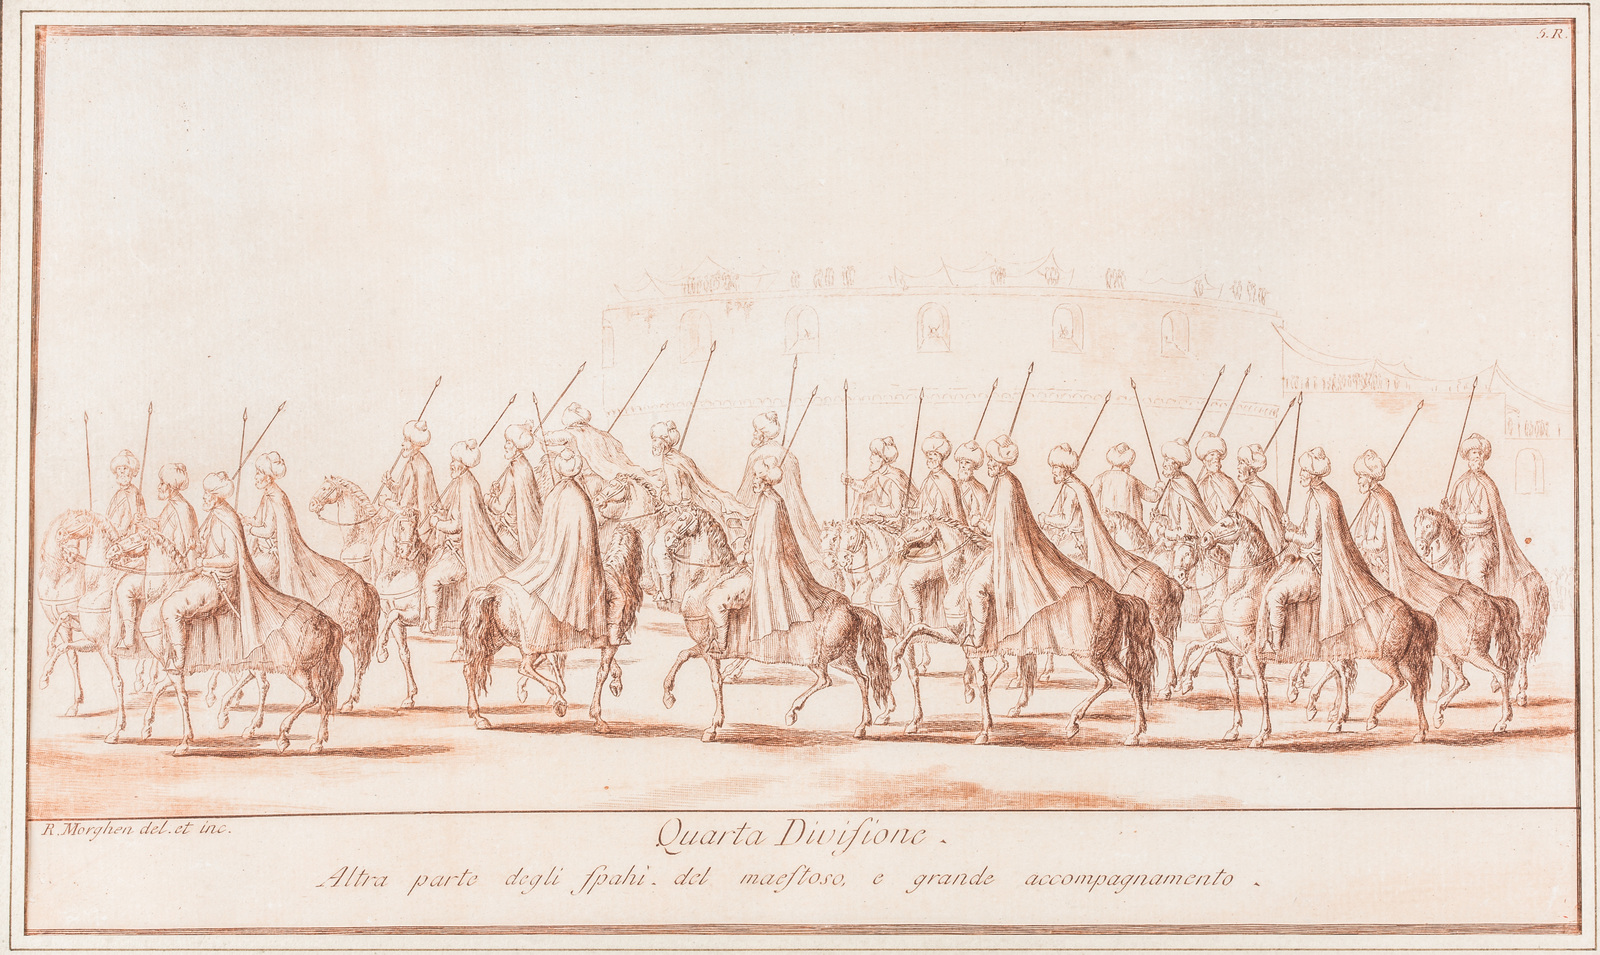 5. R.
R. Morghen del. et inc.
Quarta Diviſione.
Altra parte degli ſpahì. del maeſtoso, e grande accompagnamento.